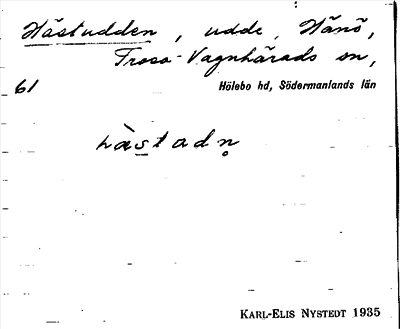 Hästudden, udde, Hånö,
Trosa-Vagnhärads sn,
61
Hölebo hd, Södermanlands län
hàstadn̥
KARL-ELIS NYSTEDT 1935